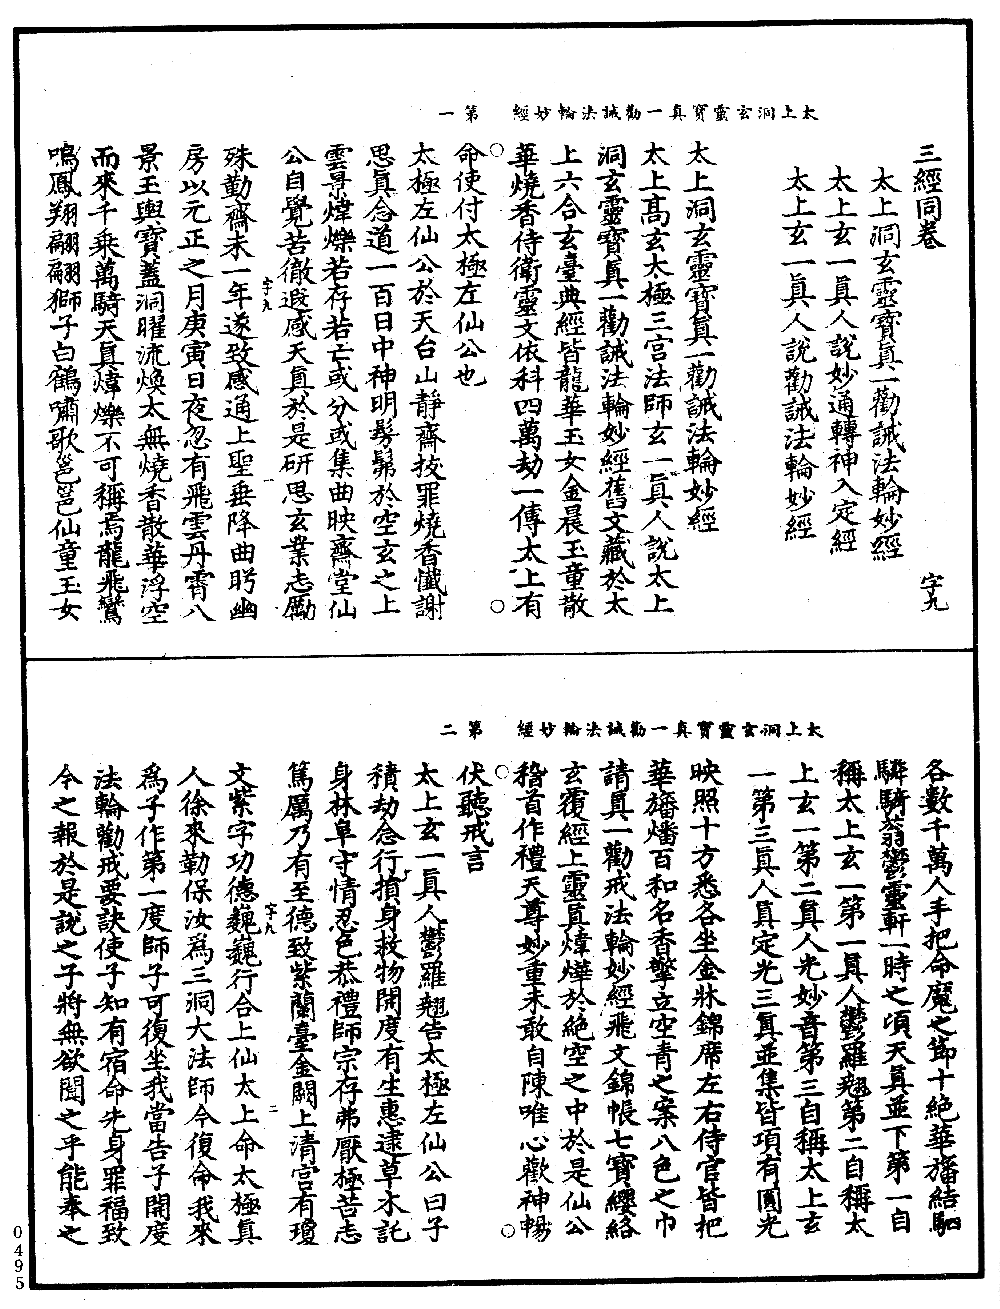 太上洞玄靈寶真一勸誡法輪妙經　第一
三經同卷　字九
太上洞玄靈寶真一勸誡法輪妙經
太上玄一真人說妙通轉神入定經
太上玄一真人說勸誡法輪妙經
太上洞玄靈寶真一勸誡法輪妙經
太上高玄太極三宫法師玄一真人說太上
洞玄靈寶真一勸誡法輪妙經舊文藏於太
上六合玄臺典經皆龍華玉女金晨玉童散
華燒香侍衛靈文依科四萬劫一傳太上有
命使付太極左仙公也
太極左仙公於天台山靜齋拔罪燒香懺謝
思真念道一百日中神明髣髴於空玄之上
雲景煒爍若存若亡或分或集曲映齋堂仙
公自覺苦徹遐感天真於是研思玄業志勵
字九
殊勤齋未一年遂致感通上聖垂降曲眄幽
房以元正之月庚寅日夜忽有飛雲丹霄八
景玉輿寶蓋洞曜流煥太無燒香散華浮空
而來千乘萬騎天真煒爍不可稱焉龍飛鸞
鳴鳳翔翩翩獅子白鶴嘯歌邕邕仙童玉女
太上洞玄靈寶真一勸誡法輪妙經　第二
各數千萬人手把命魔之節十絕華旛結駟
驎騎蓊鬱靈軒一時之頃天真並下第一自
稱太上玄一第一真人鬱羅翹第二自稱太
上玄一第二真人光妙音第三自稱太上玄
一第三真人真定光三真並集皆項有圓光
映照十方悉各坐金牀錦席左右侍官皆把
華旛燔百和名香擎立空青之案八色之巾
請真一勸戒法輪妙經飛文錦帳七寶纓絡
玄覆經上靈真煒燁於絕空之中於是仙公
稽首作禮天尊妙重未敢自陳唯心歡神暢
伏聽戒言
太上玄一真人鬱羅翹告太極左仙公曰子
積劫念行損身救物開度有生惠逮草木託
身林阜守情忍色恭禮師宗存弗厭極苦志
篤厲乃有至德致紫蘭臺金闕上清宫有瓊
字九　二
文紫字功德巍巍行合上仙太上命太極真
人徐來勒保汝為三洞大法師今復命我來
為子作第一度師子可復坐我當告子開度
法輪勸戒要訣使子知有宿命先身罪福致
今之報於是說之子將無欲聞之乎能奉之
0495